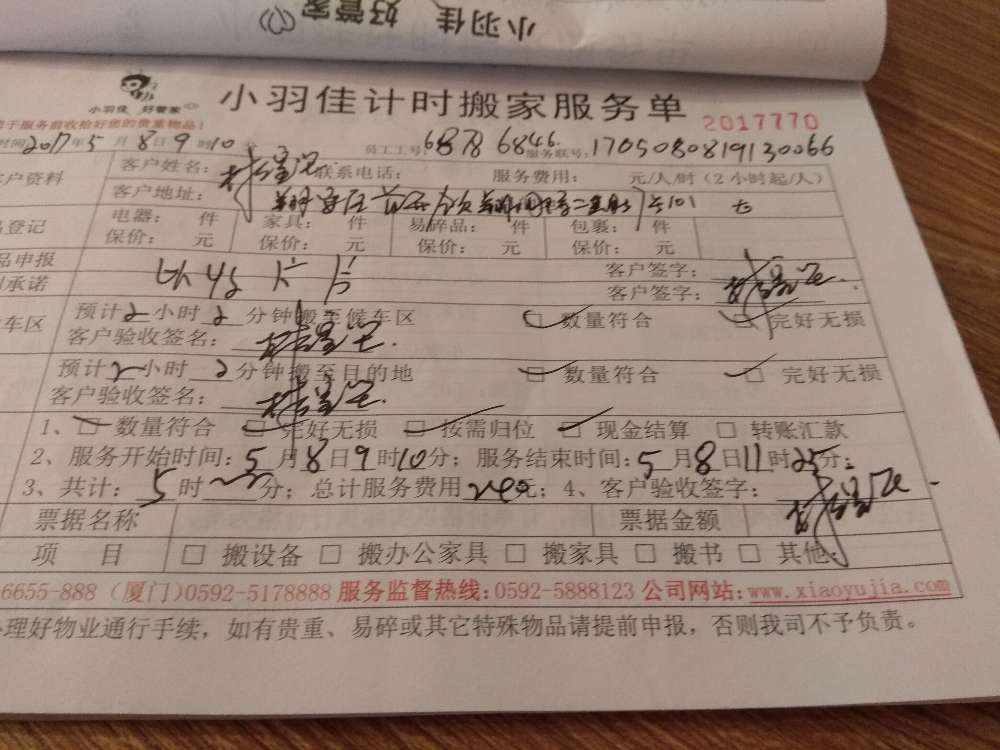 小羽佳 好管家
小羽佳 好管家
小羽佳计时搬家服务单
2017770
于服务前收拾好您的贵重物品!
时间2017年5月8日9时10 员工工号:68786846 服务联号:1705080819130066
客户资料 客户姓名: 联系电话: 服务费用: 元/人/时(2小时起/人)
客户地址: 101
登记 电器: 件 家具: 件 易碎品: 件 包裹: 件
保价: 元 保价: 元 保价: 元 保价: 元
品申报 客户签字:
承诺 客户签字:
车区 预计2小时2分钟搬至候车区 数量符合 完好无损
客户验收签名:
预计2小时2分钟搬至目的地 数量符合 完好无损
客户验收签名:
1、数量符合 完好无损 按需归位 现金结算 转账汇款
2、服务开始时间:5月8日9时10分; 服务结束时间:5月8日11时25分;
3、共计:5时分; 总计服务费用元; 4、客户验收签字:
票据名称 票据金额
项目 搬设备 搬办公家具 搬家具 搬书 其他:
6655-888 (厦门)0592-5178888 服务监督热线:0592-5888123 公司网站:www.xiaoyujia.com
理好物业通行手续，如有贵重、易碎或其它特殊物品请提前申报，否则我司不予负责。